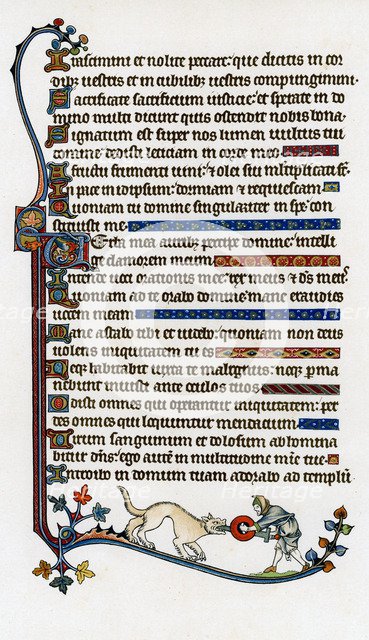 Irascimini et nolite peccare: que dicitis in cor
dibꝫ vestris et in cubilibꝫ vestris compungimini.
Sacrificate sacrificium iusticie: et sperate in do
mino multi dicunt quis ostendit nobis bona.
Signatum est super nos lumen vultus tui
domine: dedisti leticiam in corde meo.
A fructu frumenti vini: et olei sui multiplicati st̄.
In pace in idipsum: dormiam et requiescam
Quoniam tu domine singulariter in spe: con
stituisti me
Verba mea auribꝫ percipe domine: intelli
ge clamorem meum
Intende voci orationis mee: rex meus et d̄s me͛.
Quoniam ad te orabo domine: mane exaudies
vocem meam
Mane astabo tibi et videbo: quoniam non deus
volens iniquitatem tu es
Neqꝫ habitabit iuxta te malignus: neqꝫ perma
nebunt iniusti ante oculos tuos
Odisti omnes qui operantur iniquitatem: per
des omnes qui loquuntur mendacium
Virum sanguinum et dolosum abhomina
bitur dn̄s: ego autē in multitudine mīe tue
Introibo in domum tuam adorabo ad templū.
Heritage